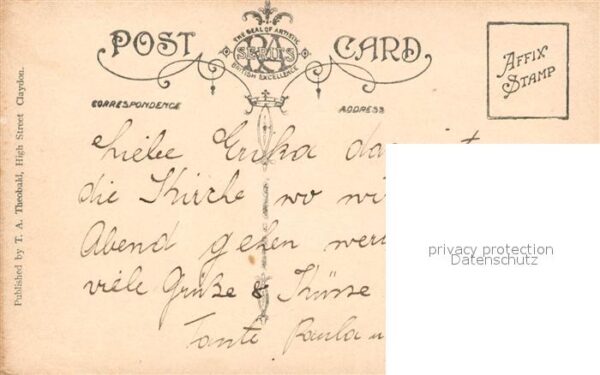 POST CARD
THE SEAL OF ARTISTIC
SERIES
BRITISH EXCELLENCE
AFFIX
STAMP
CORRESPONDENCE
ADDRESS
Published by T. A. Theobald, High Street Claydon.
Liebe Erika das ist
die Kirche wo wi
Abend gehen wer
viele Grüße & Küsse
Tante Paula u
privacy protection
Datenschutz